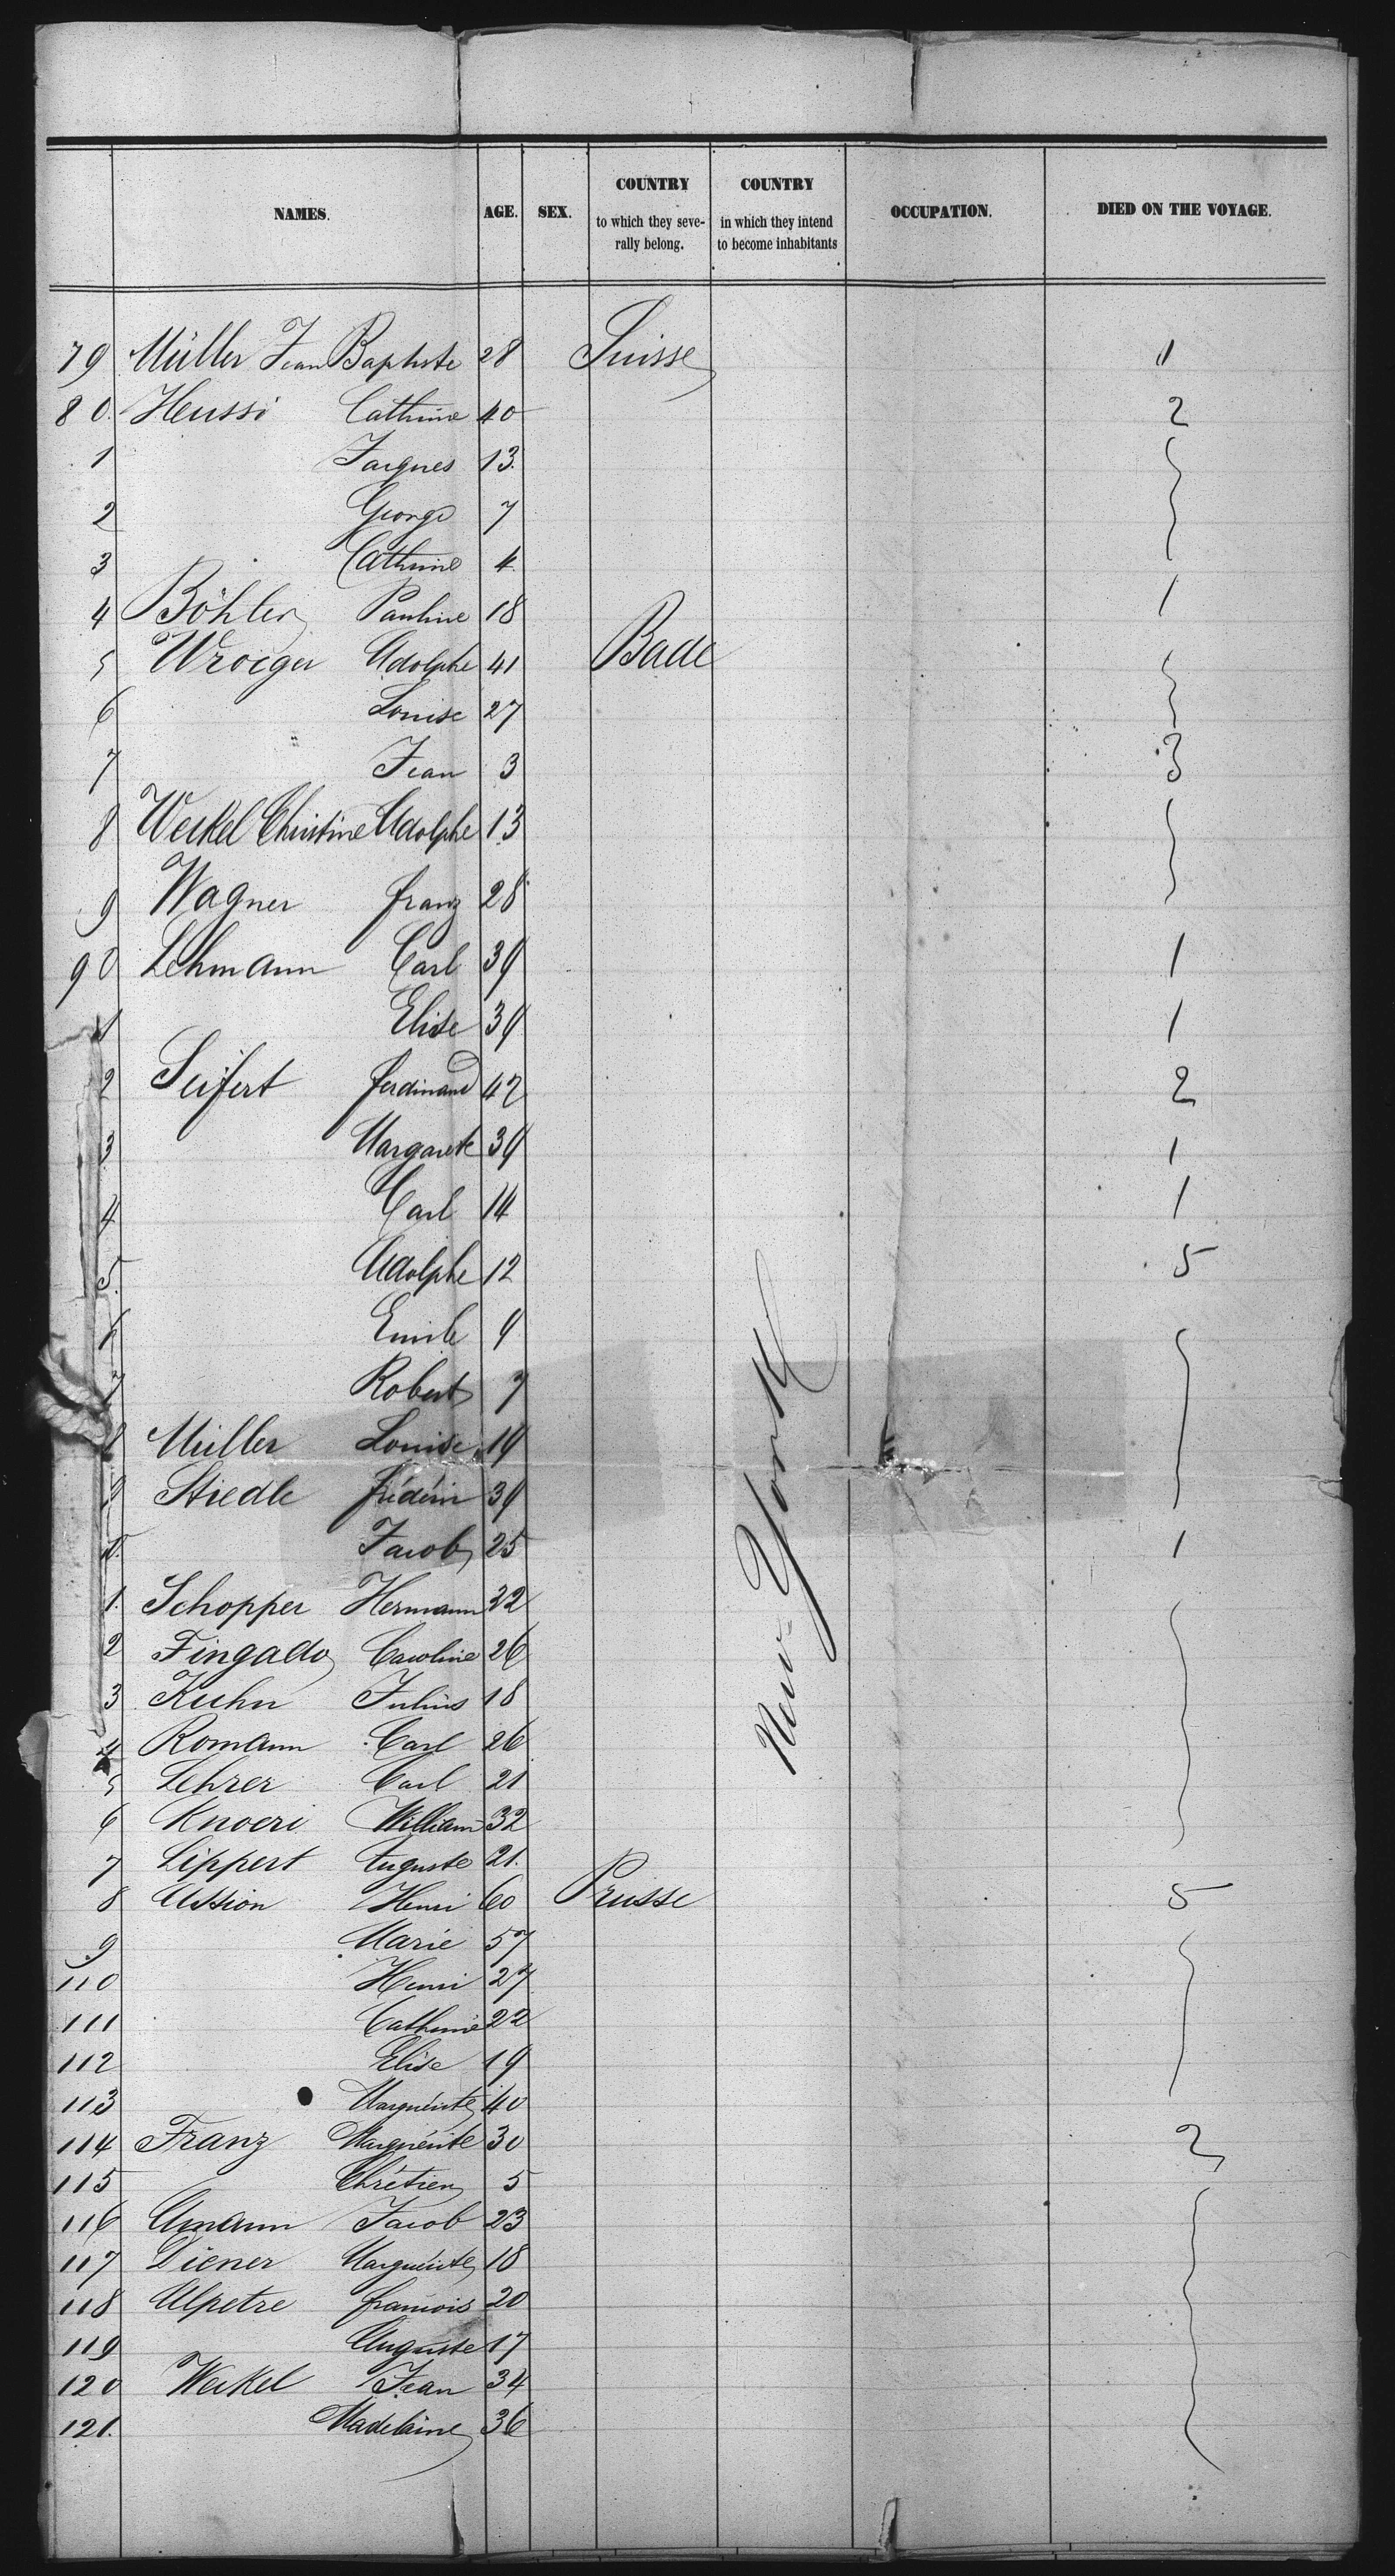 NAMES. AGE. SEX. COUNTRY to which they seve- rally belong. COUNTRY in which they intend to become inhabitants OCCUPATION. DIED ON THE VOYAGE.
79 Müller Jean Baptiste 28 Suisse 1
80. Heussi Cathrine 40 2
1 Jacques 13.
2 George 7
3 Cathrine 4
4 Böhler Pauline 18 1
5 Wroeger Adolphe 41 Bade
6 Louise 27
7 Jean 3 3
8 Weikel Christine Adolphe 13
9 Wagner franz 28
90 Lehmann Carl 39 1
1 Elise 39 1
2 Seifert ferdinand 42 2
3 Margarete 39 1
4 Carl 14 1
5. Adolphe 12 5
6 Emile 9
7 Robert 7
8 Müller Louise 19
9 Stiedle frédéric 39
Jacob 25 1
1. Schopper Hermann 32
2 Fingado Caroline 26
3 Kuhn Julius 18
4 Romann Carl 26
5 Lehrer Carl 21
6 Knoeri William 32
7 Lippert Auguste 21.
8 Assion Henri 60 Prusse 5
9 Marie 57
110 Henri 27
111 Cathrine 22
112 Elise 19
113 Marguérite 40
114 Franz Marguérite 30 2
115 Chrétien 5
116 Amann Jacob 23
117 Diener Marguérite 18
118 Alpetre francois 20
119 Auguste 17
120 Weikel Jean 34
121. Madelaine 36
New-York